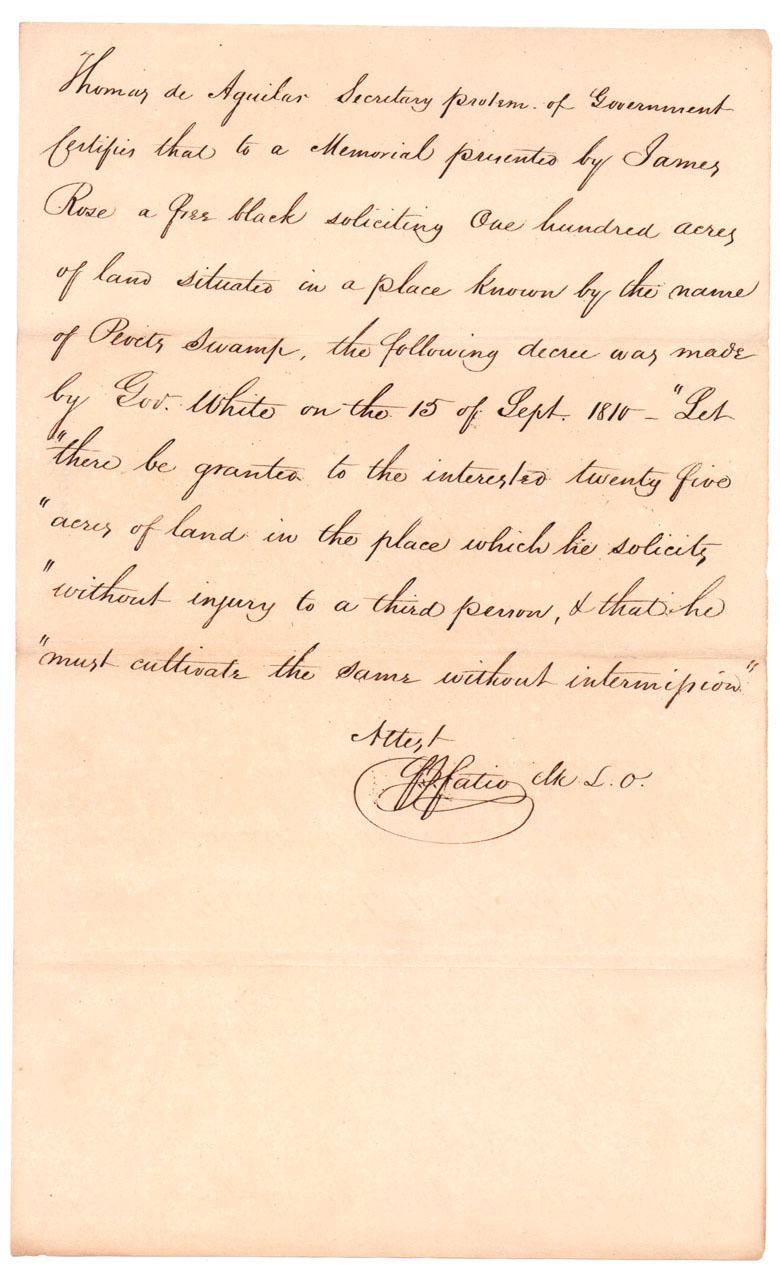 Thomas de Aguilar Secretary protem. of Government
Certifies that to a Memorial presented by James
Rose a free black soliciting One hundred acres
of land situated in a place known by the name
of Pevets Swamp, the following decree was made
by Gov. White on the 15 of Sept. 1810 – "Let
"there be granted to the interested twenty five
"acres of land in the place which he solicits,
"without injury to a third person, & that he
"must cultivate the same without intermission"
Attest
F J Fatio Clk L. O.